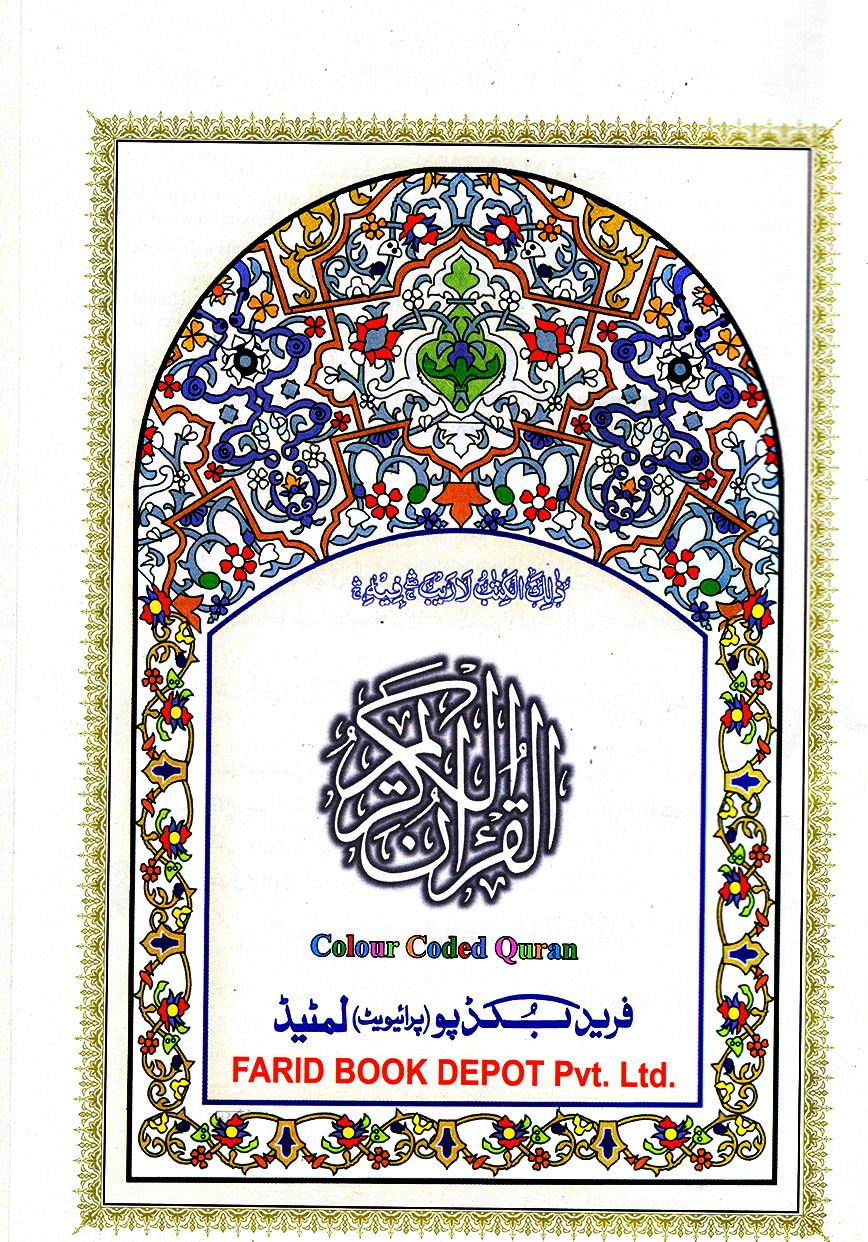 ذٰلِكَ الْكِتٰبُ لَا رَيْبَ ۛ فِيْهِ ۛ
القرآن الكريم
Colour Coded Quran
فرید بُکڈپو (پرائیویٹ) لمٹیڈ
FARID BOOK DEPOT Pvt. Ltd.